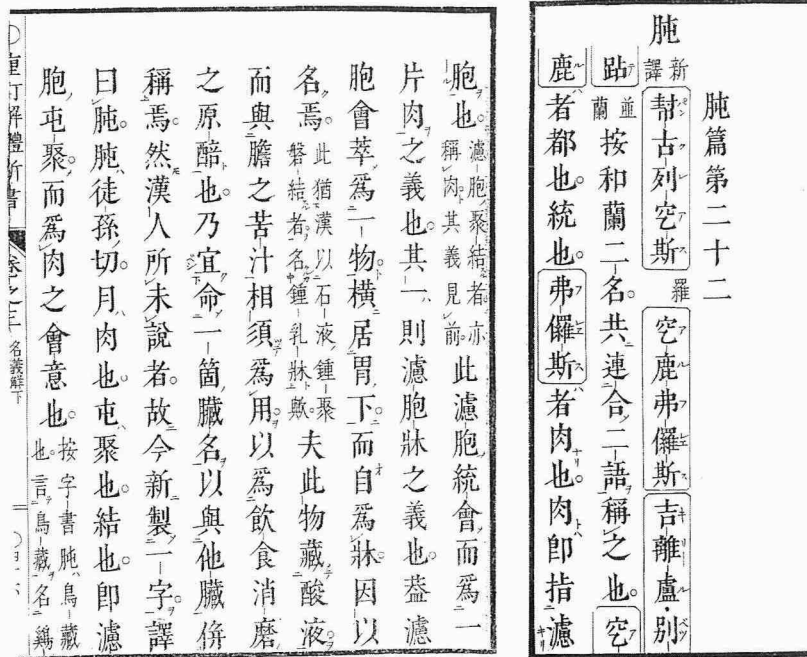 肫篇第二十二
肫 新譯 幇古列空斯 羅 空鹿弗儸斯 吉離盧・別
跕 並蘭 按和蘭二名共連合二語稱之也。空
鹿者都也。統也。弗儸斯者肉也。肉卽指濾
胞也。濾胞聚結者亦稱肉其義見前 此濾胞統會而爲一
片肉之義也。其一則濾胞牀之義也。葢濾
胞會萃爲一物橫居胃下而自爲牀因以
名焉。此猶漢以石液鍾聚磐結者名鍾乳牀歟。夫此物藏酸液
而與膽之苦汁相須爲用以爲飲食消磨
之原醅也。乃宜命一箇臓名以與他臓倂
稱焉。然漢人所未說者。故今新製一字譯
曰肫。肫徒孫切。月肉也。屯聚也。結也。卽濾
胞屯聚而爲肉之會意也。按字書肫鳥藏也。言鳥藏名鷄
重訂解體新書 卷之三 名義解下